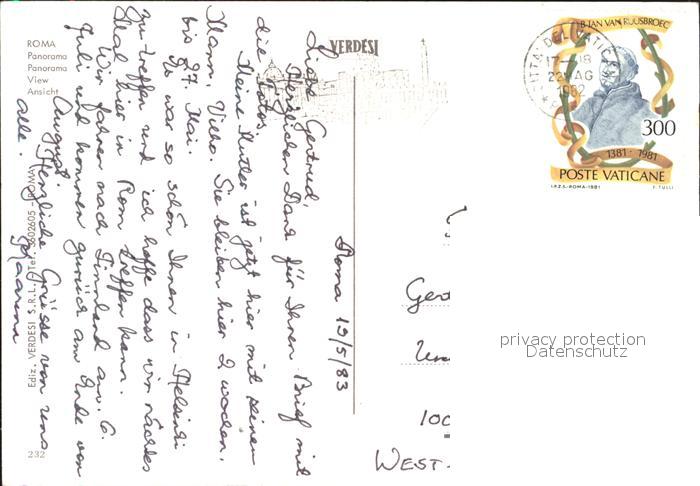 ROMA
Panorama
Panorama
View
Ansicht
VERDESI
Roma 19/5/83
Liebe Gertrud,
Herzlichen Dank für Ihren Brief mit
die Fotos.
Meine Mutter ist jetzt hier mit seinen
Mann, Vilho. Sie bleiben hier 2 wochen,
bis 27. Mai.
Es war so schön Ihnen in Helsinki
zu treffen und ich hoffe dass wir nächstes
Mal hier in Rom treffen kann.
Wir fahren nach Finnland am 6.
Juli und kommen zurück am Ende von
August.
Herzliche Grüsse von uns
alle.
Kaarina
Ediz. VERDESI S.R.L. (Tel. 5602605 - ROMA)
232
B·JAN VAN RUUSBROEC
CITTA DEL VATICANO
17-18
22 AG
300
1381 · 1981
POSTE VATICANE
I.P.Z.S.-ROMA-1981
F. TULLI
Ger
100
WEST-
privacy protection
Datenschutz